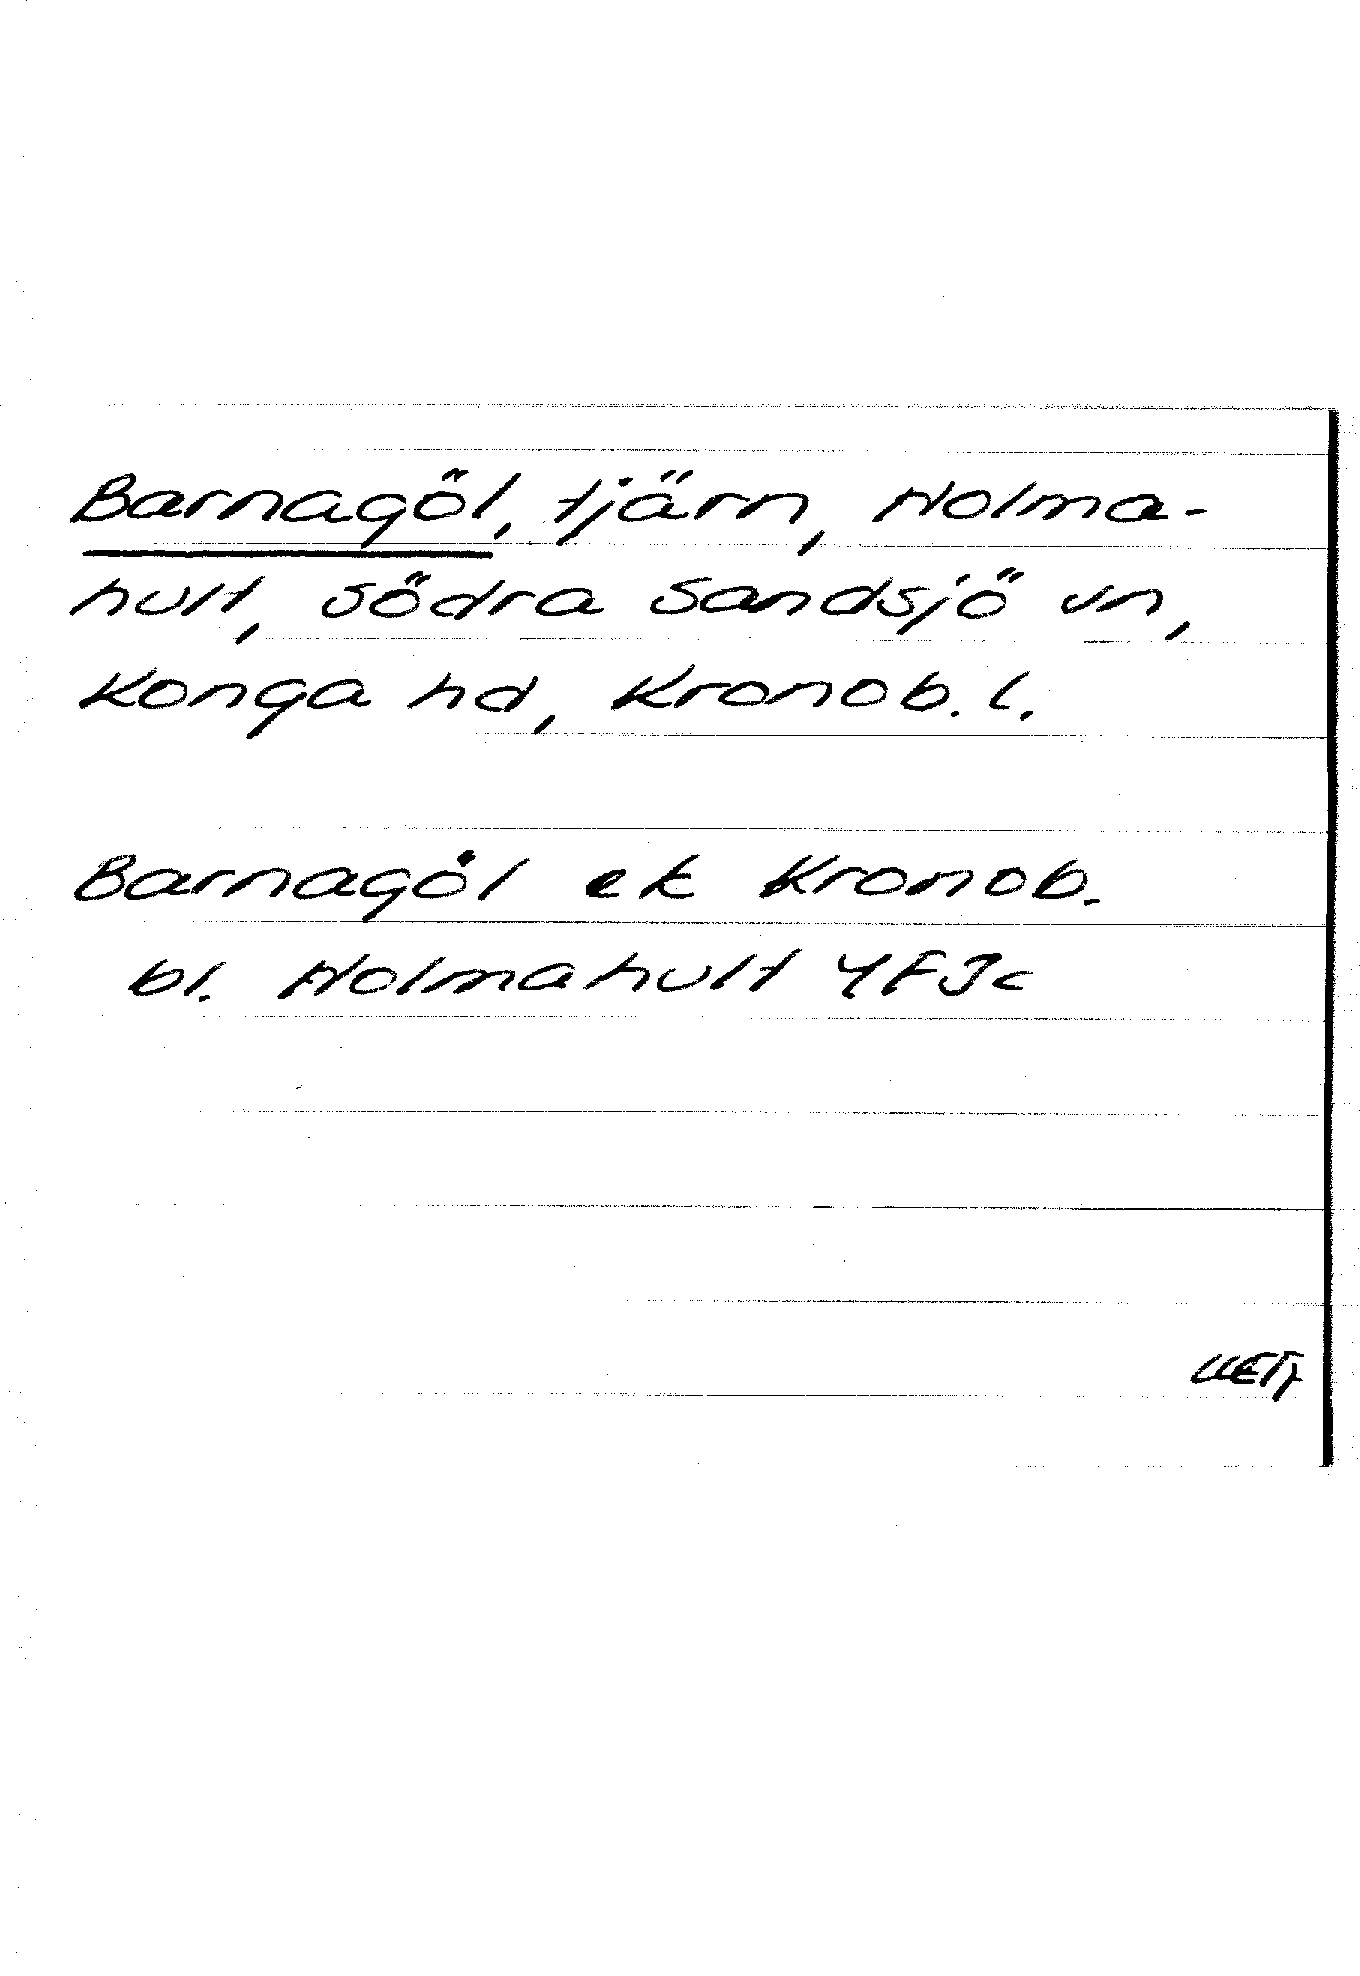 Barnagöl, tjärn, Holma-
hult, södra Sandsjö sn,
Konga hd, Kronob. l.
Barnagöl ek Kronob.
bl. Holmahult 4F3c